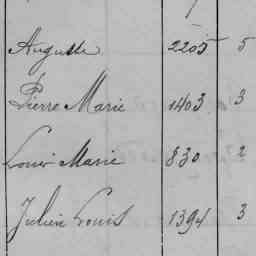 Auguste 2205 5
Pierre Marie 1403 3
Louis Marie 830 2
Julien Louis 1394 3